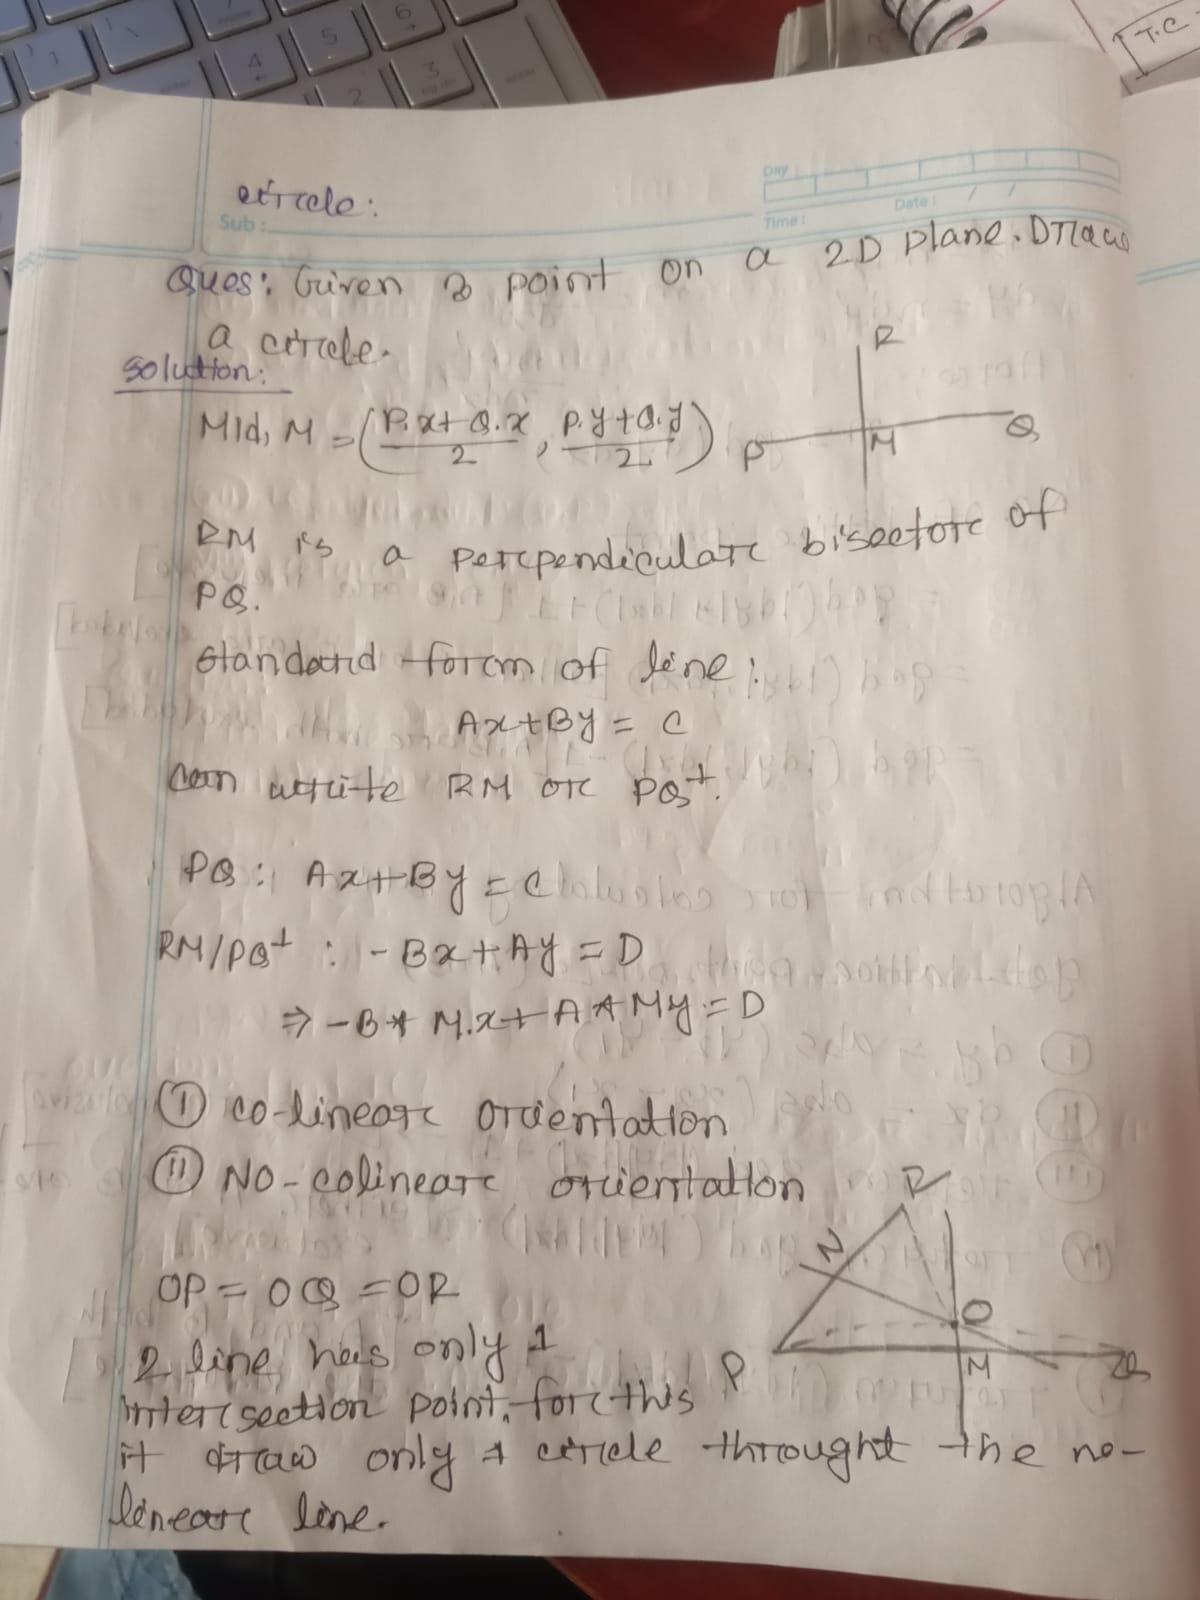 circle:
Sub:
Day
Time:
Date: / /
Ques: Given 3 point on a 2D plane. Draw
a circle.
Solution:
Mid, M = (P.x+Q.x/2, P.y+Q.y/2)
R
P M Q
RM is a perpendicular bisector of
PQ.
standard form of line:
Ax+By = C
can write RM or PQ⊥.
PQ: Ax+By = C
RM/PQ⊥ : -Bx+Ay = D
⇒ -B* M.x+A*My = D
(I) co-linear orientation
(II) NO-colinear orientation
R
N
O
P M Q
OP = OQ = OR
2 line has only 1
intersection point. for this
it draw only 1 circle throught the no-
linear line.
T.C
4
5
6
2
3